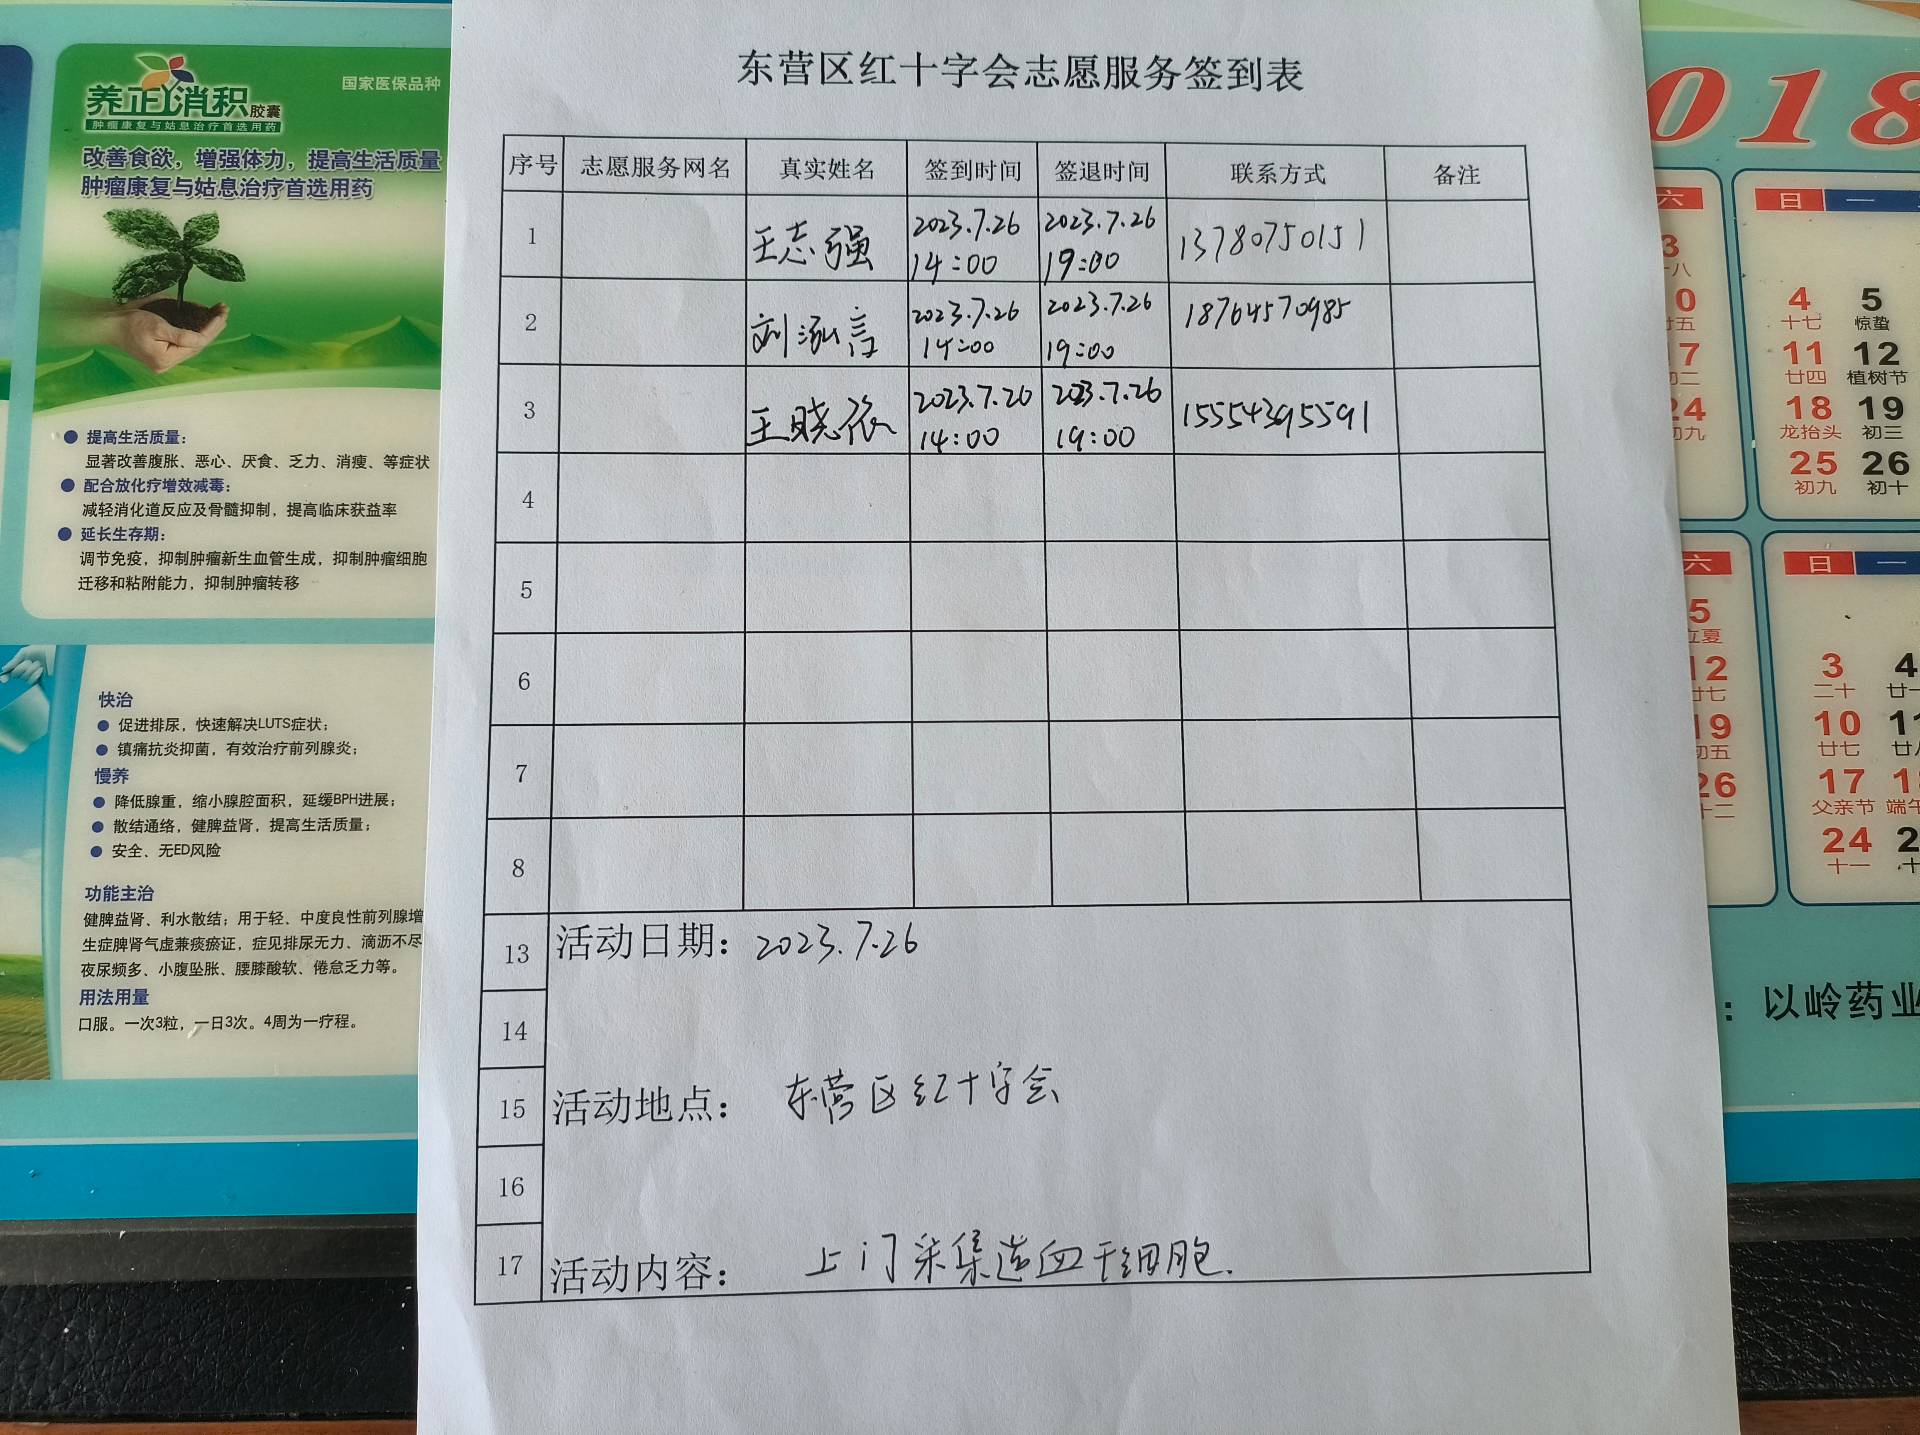 东营区红十字会志愿服务签到表
序号 志愿服务网名 真实姓名 签到时间 签退时间 联系方式 备注
1 王志强 2023.7.26 14:00 2023.7.26 19:00 13780750151
2 刘泓言 2023.7.26 14:00 2023.7.26 19:00 18764570985
3 王晓依 2023.7.26 14:00 2023.7.26 19:00 15554395591
4
5
6
7
8
13 活动日期：2023.7.26
14
15 活动地点： 东营区红十字会
16
17 活动内容： 上门采集造血干细胞.
养正消积胶囊
国家医保品种
肿瘤康复与姑息治疗首选用药
改善食欲，增强体力，提高生活质量
肿瘤康复与姑息治疗首选用药
● 提高生活质量：
显著改善腹胀、恶心、厌食、乏力、消瘦、等症状
● 配合放化疗增效减毒：
减轻消化道反应及骨髓抑制，提高临床获益率
● 延长生存期：
调节免疫，抑制肿瘤新生血管生成，抑制肿瘤细胞
迁移和粘附能力，抑制肿瘤转移
快治
● 促进排尿，快速解决LUTS症状；
● 镇痛抗炎抑菌，有效治疗前列腺炎；
慢养
● 降低腺重，缩小腺腔面积，延缓BPH进展；
● 散结通络，健脾益肾，提高生活质量；
● 安全、无ED风险
功能主治
健脾益肾、利水散结；用于轻、中度良性前列腺增
生症脾肾气虚兼痰瘀证，症见排尿无力、滴沥不尽
夜尿频多、小腹坠胀、腰膝酸软、倦怠乏力等。
用法用量
口服。一次3粒，一日3次。4周为一疗程。
018
六
日 一
4 5
十七 惊蛰
11 12
廿四 植树节
18 19
龙抬头 初三
25 26
初九 初十
六
日 一
3 4
二十
10
廿七
17
父亲节
24
十一
：以岭药业